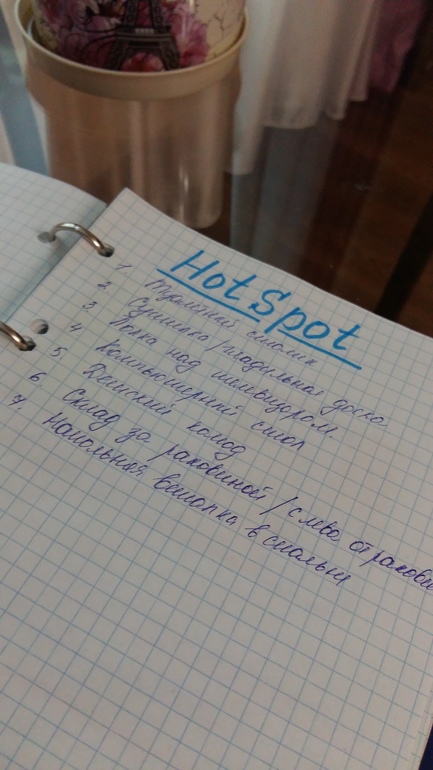 HotSpot
1. Туалетный столик
2. Сушилка/гладильная доска
3. Полка над телевизором.
4. Компьютерный стол
5. Детский комод
6. Склад за раковиной / слева от раковины
7. Напольная вешалка в спальни